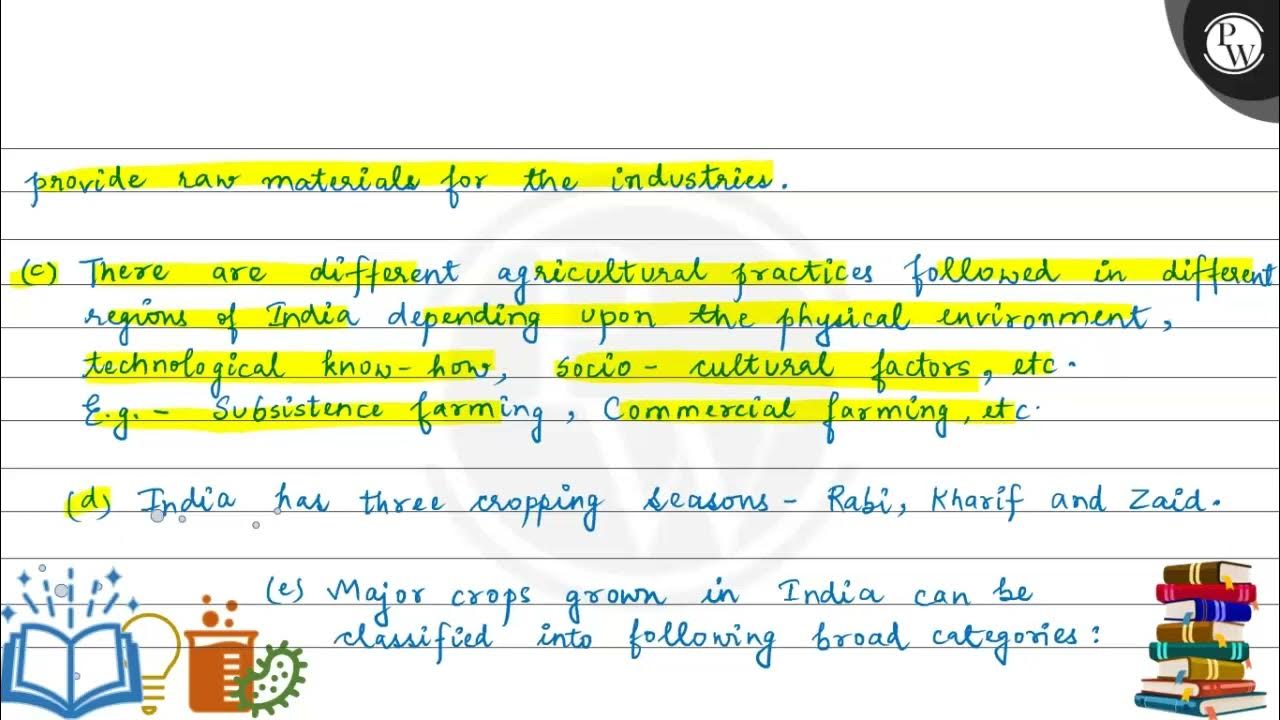 PW
provide raw materials for the industries.
(c) There are different agricultural practices followed in different
regions of India depending upon the physical environment,
technological know-how, socio-cultural factors, etc.
E.g. - Subsistence farming, Commercial farming, etc.
(d) India has three cropping seasons - Rabi, Kharif and Zaid.
(e) Major crops grown in India can be
classified into following broad categories: